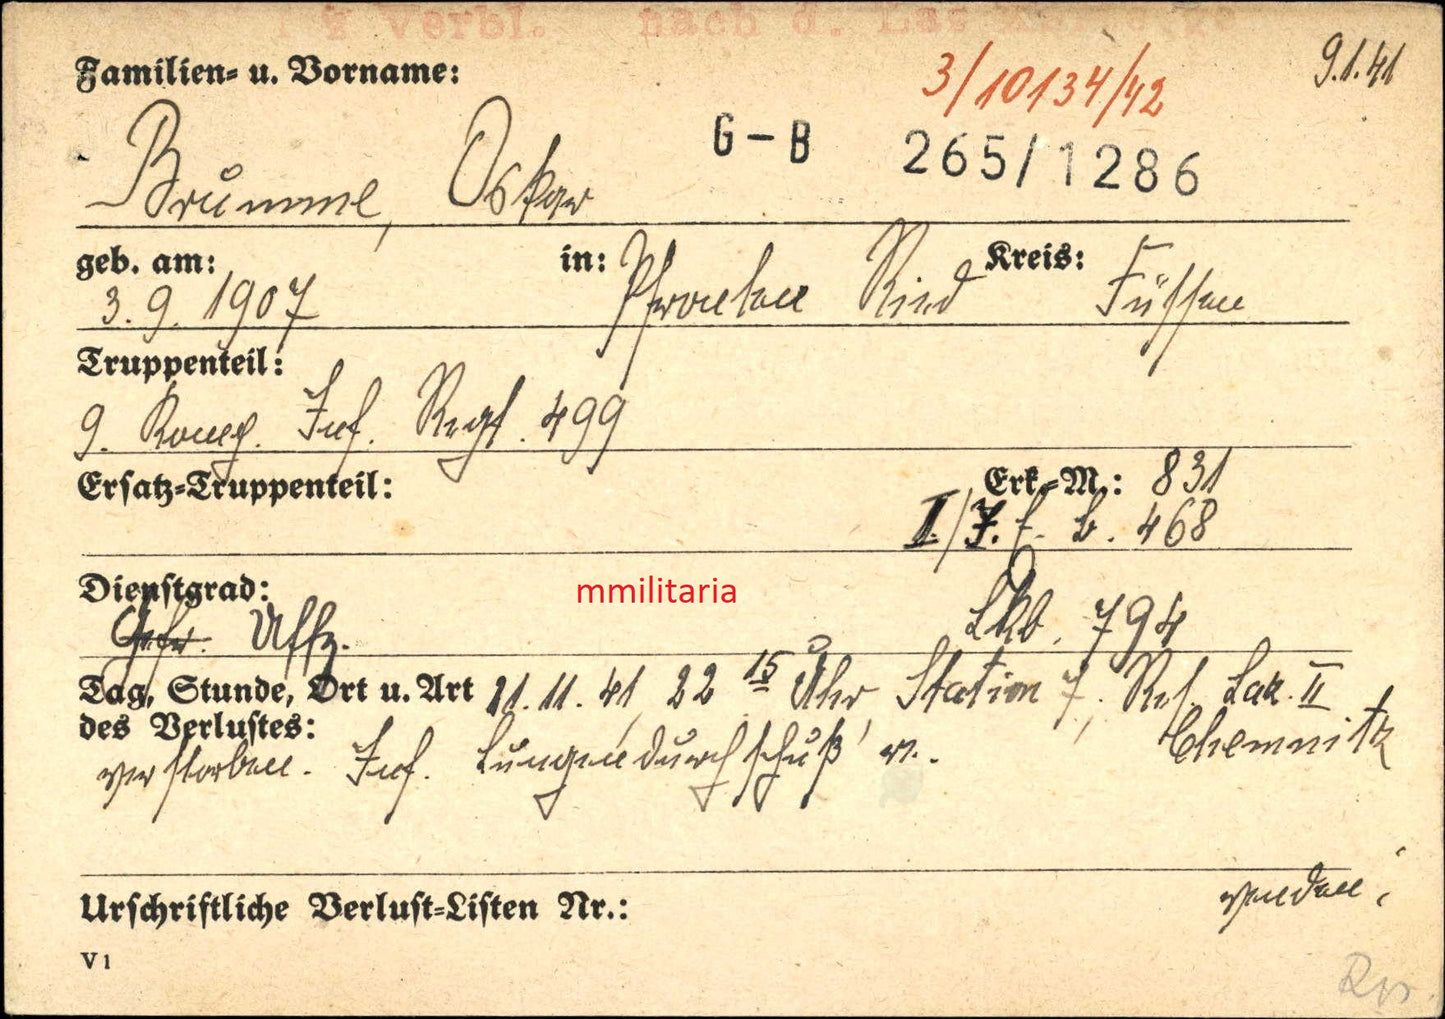 Verbl. nach d. Laz
Familien- u. Vorname:
3/10134/42
9.1.41
G-B 265/1286
Brummel, Oskar
geb. am: in: Pfronten Ried Kreis: Füssen
3.9.1907
Truppenteil:
9. Komp. Inf. Regt. 499
Ersatz-Truppenteil:
Erk.-M.: 831
I/J. E. B. 468
Dienstgrad:
Gefr. Uffz.
794
Tag, Stunde, Ort u. Art 21.11.41 22 15 Uhr Station 7, Res. Laz. II
des Verlustes: Chemnitz
verstorben. Inf. Lungendurchschuß
mmilitaria
Urschriftliche Verlust-Listen Nr.:
wenden!
V 1